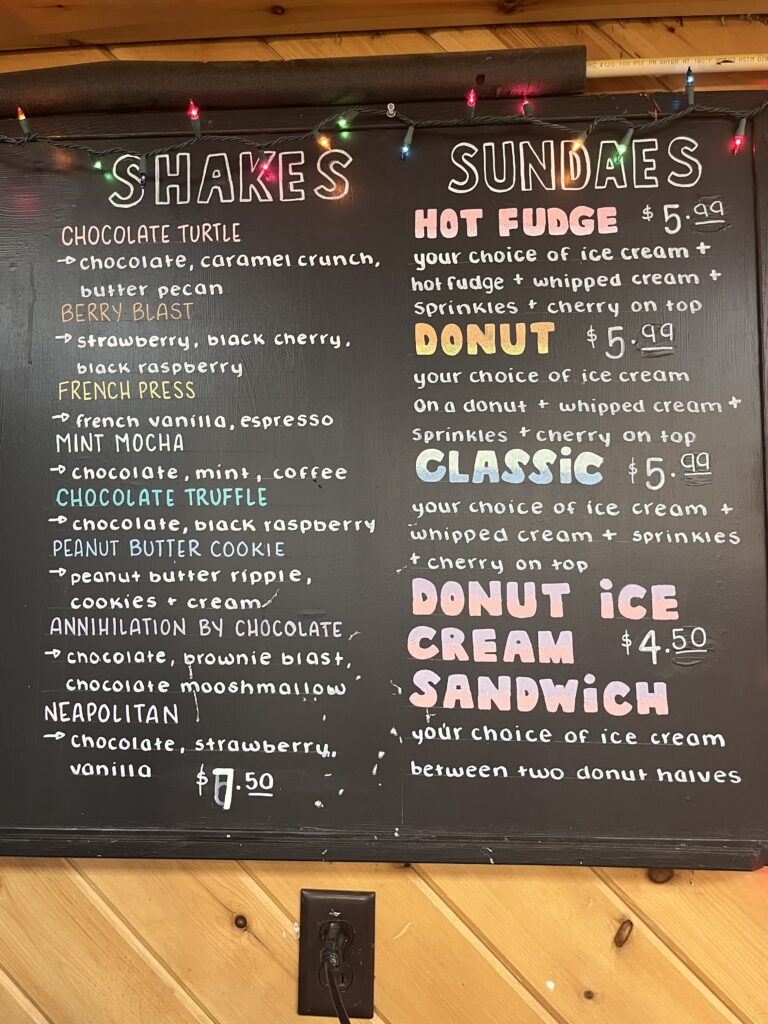 SHAKES
CHOCOLATE TURTLE
→ chocolate, caramel crunch,
butter pecan
BERRY BLAST
→ strawberry, black cherry,
black raspberry
FRENCH PRESS
→ french vanilla, espresso
MINT MOCHA
→ chocolate, mint, coffee
CHOCOLATE TRUFFLE
→ chocolate, black raspberry
PEANUT BUTTER COOKIE
→ peanut butter ripple,
cookies + cream
ANNIHILATION BY CHOCOLATE
→ chocolate, brownie blast,
chocolate mooshmallow
NEAPOLITAN
→ chocolate, strawberry,
vanilla $7.50
SUNDAES
HOT FUDGE $5.99
your choice of ice cream +
hot fudge + whipped cream +
sprinkles + cherry on top
DONUT $5.99
your choice of ice cream
on a donut + whipped cream +
sprinkles + cherry on top
CLASSIC $5.99
your choice of ice cream +
whipped cream + sprinkles
+ cherry on top
DONUT iCE
CREAM $4.50
SANDWiCH
your choice of ice cream
between two donut halves